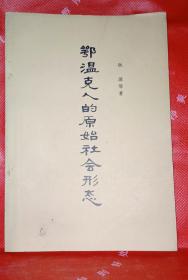 鄂温克人的原始社会形态
秋浦等著